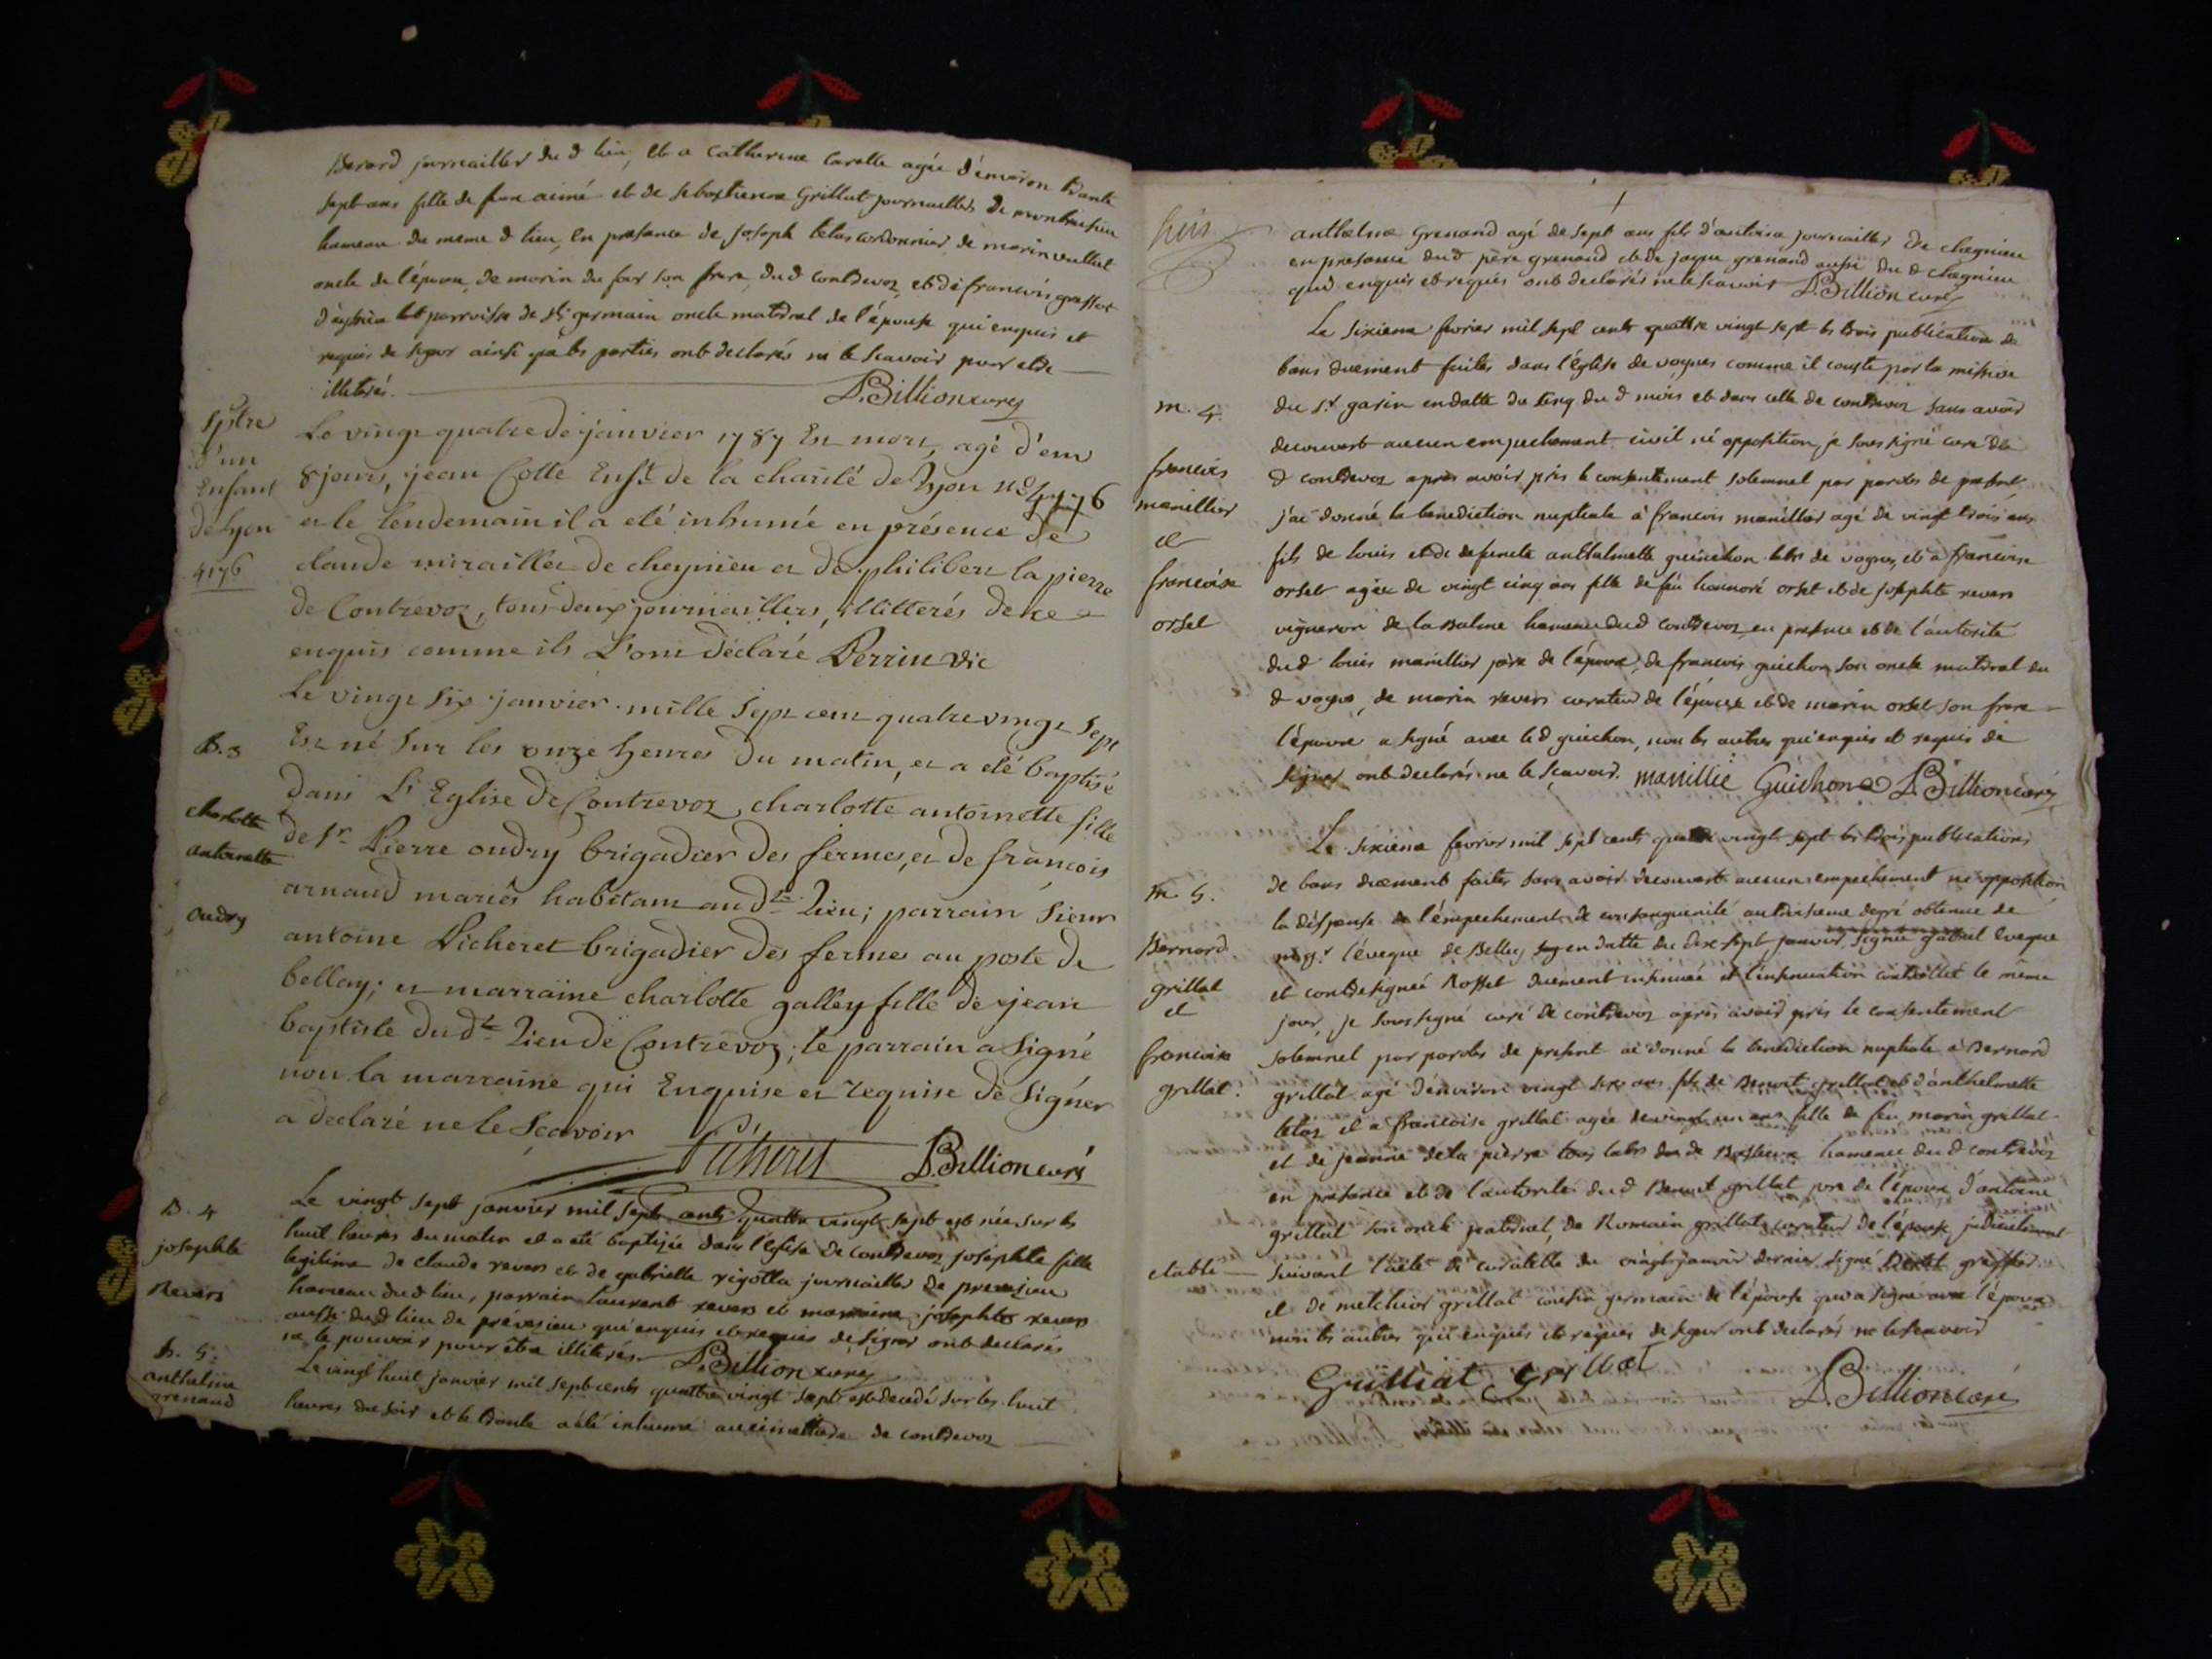 Berard journailler du d lieu, et a Catherine Carelle agée d'environ trante
sept ans fille de feu aimé et de sebastienne Grillat journailler de
hameau du meme d lieu, en presance de joseph letas cordonnier de marin vullat
oncle de l'épouse, de marin du four son frere, dud contrevoz, et de francois grosset
parroisse de st germain oncle maternel de l'épouse qui enquis et
requis de signer ainsi que les parties ont declarés ne le scavoir pour etre
illiterés. P. Billion curé
Sptre
d'un
Enfant
de Lyon
4176
Le vingt quatre de janvier 1787 Est mort, agé d'env
8 jours, jean Colle Enft de la charité de Lyon n° 4176
et le lendemain il a eté inhumé en présence de
claude miraillet de cheynieu et de philibert la pierre
de Contrevoz, tous deux journailliers, illitterés de ce
enquis comme ils L'ont déclaré Perrin vic
B. 3
charlotte
antoinette
oudry
Le vingt six janvier mille sept cent quatre vingt sept
Est né sur les onze heures du matin, et a eté baptisé
dans L'Eglise de Contrevoz, charlotte antoinette fille
de Sr Pierre oudry brigadier des fermes, et de francois
arnaud mariés habitant aud lieu; parrain sieur
antoine Picheret brigadier des fermes au poste de
bellay; et marraine charlotte galley fille de jean
baptiste dud lieu de Contrevoz; le parrain a signé
non la marraine qui Enquise et requise de signer
a declaré ne le Scavoir Picheret P. Billion curé
B. 4
josephte
Revers
Le vingt sept janvier mil sept cents quattre vingt sept est née sur les
huit heures du matin et a eté baptisée dans l'église de contrevoz josephte fille
legitime de claude revers et de gabrielle rigottier journailler de premesieu
hameau dud lieu, parrain laurent revers et marraine josephte revers
aussi dud lieu de prévesieu qui enquis et requis de signer ont declarés
ne le pouvoir pour être illiterés P. Billion curé
S. 5.
anthelme
grenand
Le vingt huit janvier mil sept cents quattre vingt sept est decedé sur les huit
heures du soir et le trante a été inhumé au cimettiere de contrevoz
anthelme Grenand agé de sept ans fils d'antoine journailler de chegnieu
en presance dud père grenand et de jaque grenand aussi du d chegnieu
qui enquis et requis ont declarés ne le scavoir P. Billion curé
m. 4.
francois
manillier
et
francoise
orset
Le sixieme fevrier mil sept cents quattre vingt sept les trois publications de
bans duement faites dans l'église de vognes comme il conste par la missive
du Sr garin en datte du cinq du d mois et dans celle de contrevoz sans avoir
decouvert aucun empechement civil né opposition, je soussigné curé de
d contrevoz apres avoir pris le consentement solemnel par paroles de present
j'ai donné la benediction nuptiale à francois manillier agé de vingt trois ans
fils de louis et de defuncte anthelmette guinchon labr de vognes, et à francoise
orset agée de vingt cinq ans fille de feu honnoré orset et de josephte revers
vigneron de la Balme hameau dud contrevoz, en presence et de l'autorité
dud louis manillier père de l'époux, de francois guichon son oncle maternel du
d vognes, de marin revers curateur de l'épouse et de marin orset son frere
l'époux a signé avec le d guichon, non les autres qui enquis et requis de
signer ont declarés ne le scavoir. manillie Guichon P. Billion curé
m. 5.
Bernard
grillat
et
francoise
grillat.
Le sixieme fevrier mil sept cents quatre vingt sept les trois publications
de bans duement faites sans avoir decouvert aucun empechement né opposition
la dispense de l'empechement de consanguinité au troisieme degré obtenue de
mgr l'éveque de Belley en datte du dix sept janvier, signée gabriel eveque
et contresignée Rosset duement insinuée et l'insinuation controllée le même
jour, je soussigné curé de contrevoz après avoir pris le consentement
solemnel par paroles de present ai donné la benediction nuptiale à Bernard
grillat agé d'environ vingt six ans fils de Benoit grillat et d'anthelmette
letaz et a francoise grillat agée de vingt un ans fille de feu marin grillat
et de jeanne dela pierre tous labrs de hameau dud contrevoz
en presance et de l'autorité dud Benoit grillat père de l'époux d'antoine
grillat son oncle paternel, de Romain grillat curateur de l'épouse judiciellement
etabli suivant l'acte de curatelle du vingt janvier dernier signé greffier
et de melchior grillat cousin germain de l'épouse qui a signé avec l'époux
non les autres qui enquis et requis de signer ont declarés ne le scavoir
Grilliat Grillat P. Billion curé